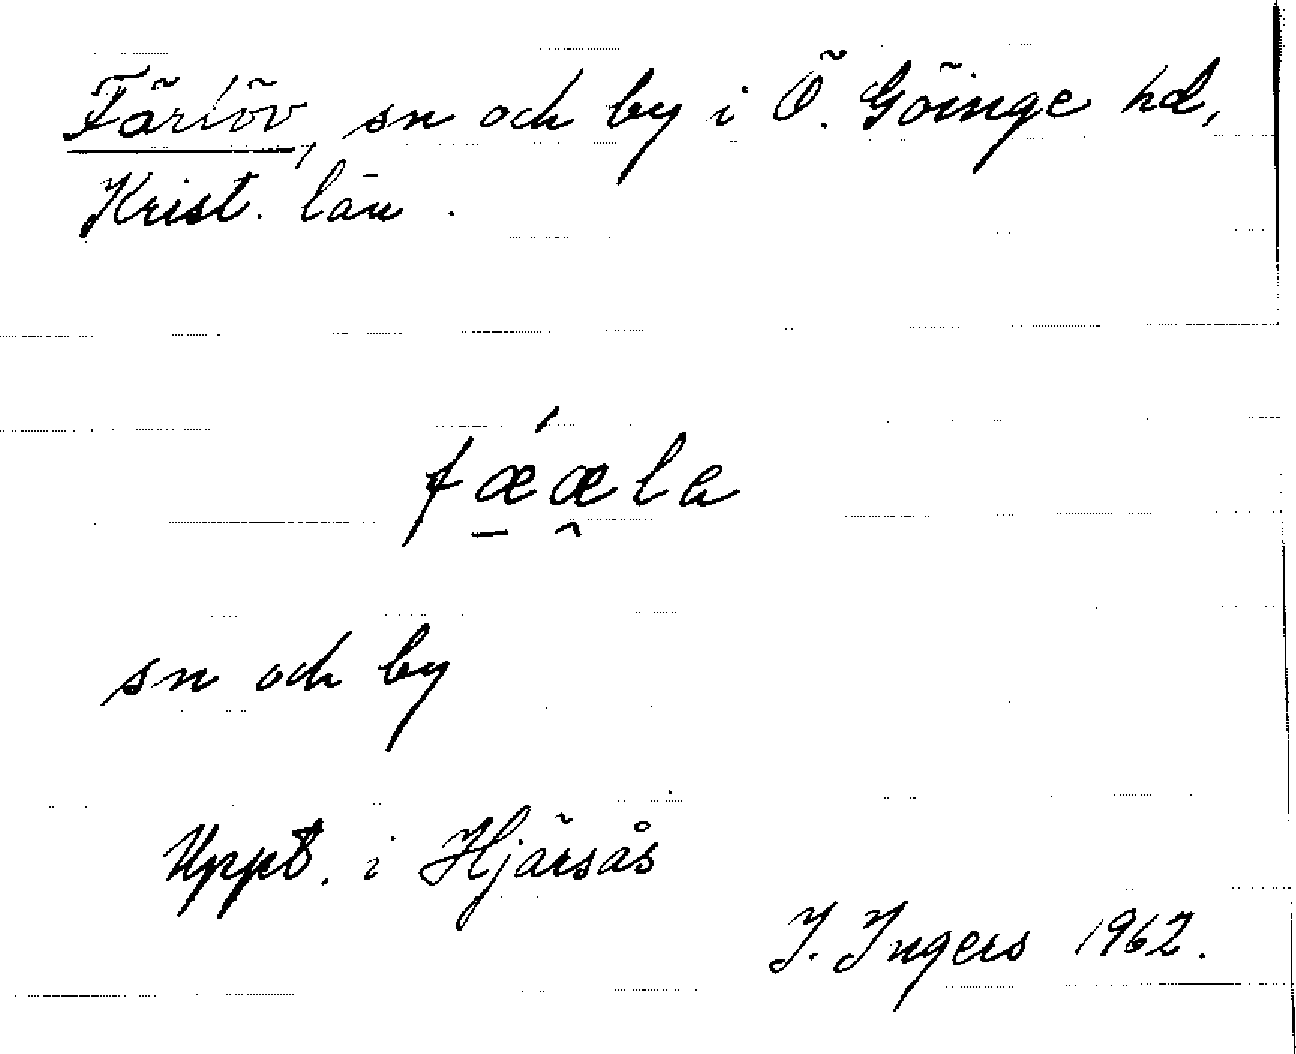 Färlöv, sn och by i Ö. Göinge hd,
Krist. län.
fǽ̱æ̭la
sn och by
Uppt. i Hjärsås
I. Ingers 1962.